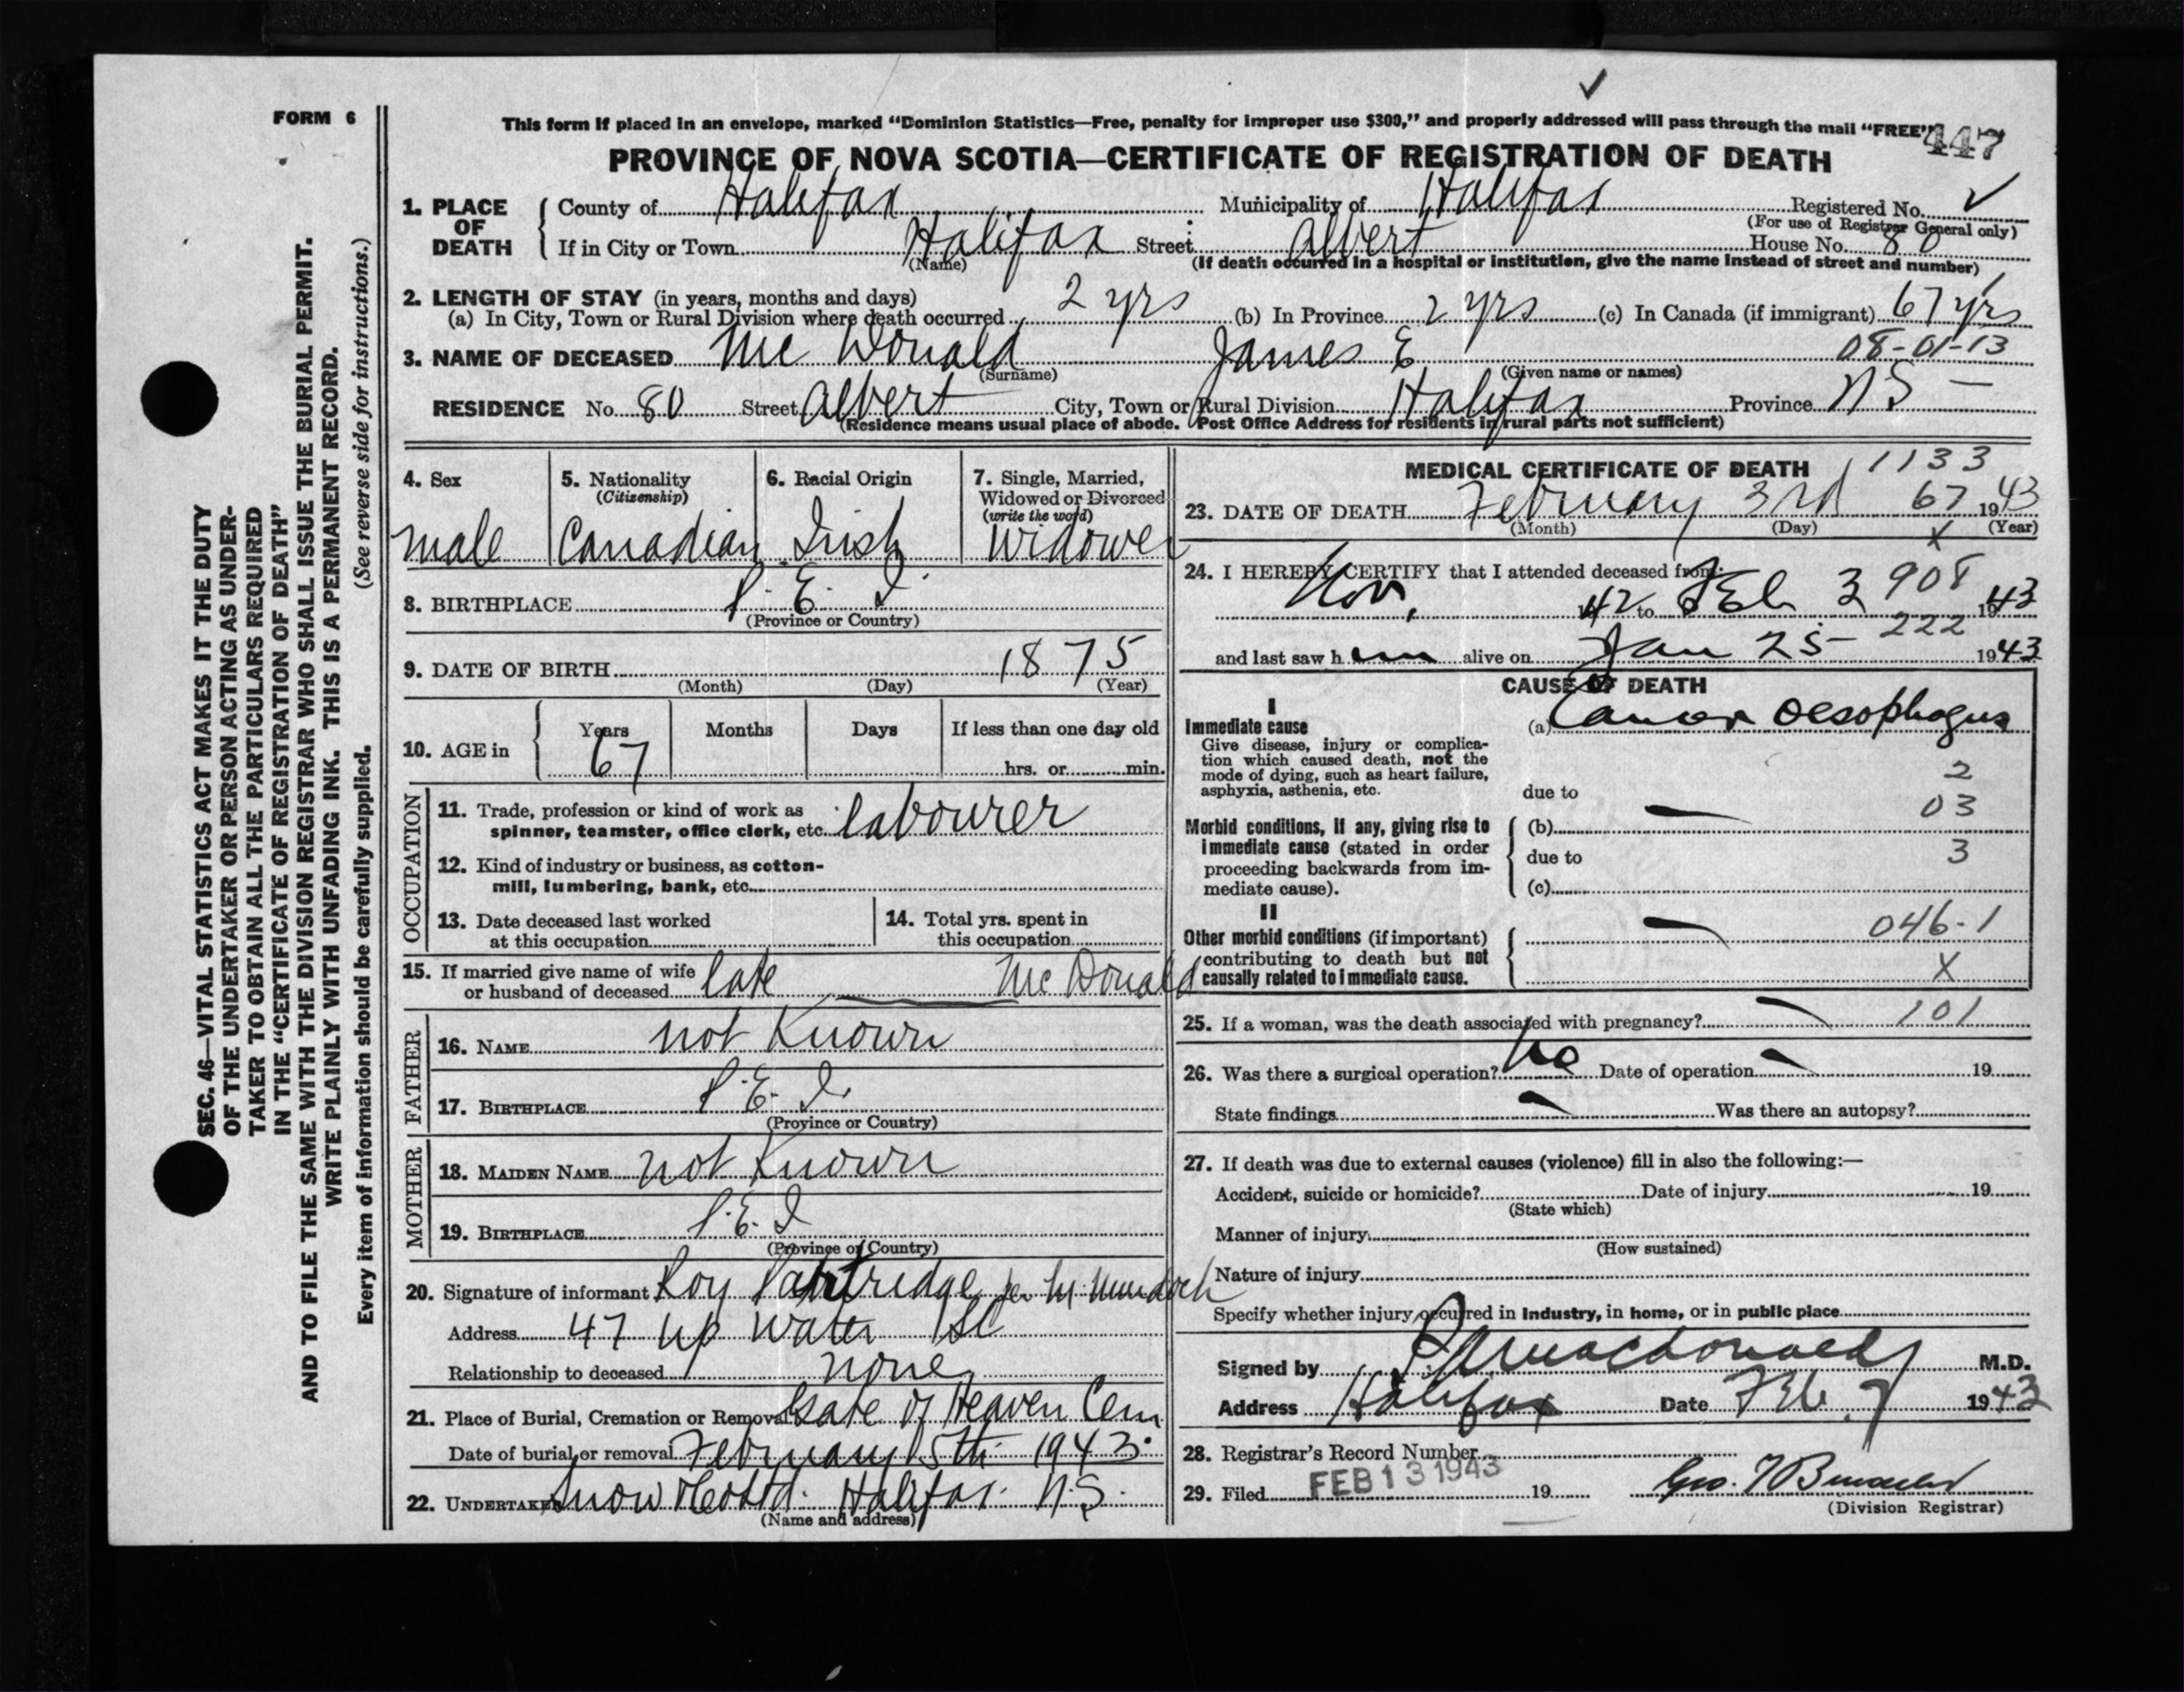 FORM 6
This form if placed in an envelope, marked "Dominion Statistics—Free, penalty for improper use $300," and properly addressed will pass through the mail "FREE"
447
PROVINCE OF NOVA SCOTIA—CERTIFICATE OF REGISTRATION OF DEATH
1. PLACE OF DEATH
County of Halifax Municipality of Halifax Registered No.
(For use of Registrar General only)
If in City or Town Halifax Street Albert House No. 80
(Name) (If death occurred in a hospital or institution, give the name instead of street and number)
2. LENGTH OF STAY (in years, months and days)
(a) In City, Town or Rural Division where death occurred 2 yrs (b) In Province 2 yrs (c) In Canada (if immigrant) 67 yrs
3. NAME OF DECEASED Mc Donald James E 08-01-13
(Surname) (Given name or names)
RESIDENCE No. 80 Street Albert City, Town or Rural Division Halifax Province N S –
(Residence means usual place of abode. Post Office Address for residents in rural parts not sufficient)
4. Sex male
5. Nationality (Citizenship) Canadian
6. Racial Origin Irish
7. Single, Married, Widowed or Divorced (write the word) Widower
8. BIRTHPLACE P. E. I.
(Province or Country)
9. DATE OF BIRTH 1875
(Month) (Day) (Year)
10. AGE in Years 67 Months Days If less than one day old
hrs. or min.
OCCUPATION
11. Trade, profession or kind of work as spinner, teamster, office clerk, etc. labourer
12. Kind of industry or business, as cotton-mill, lumbering, bank, etc.
13. Date deceased last worked at this occupation
14. Total yrs. spent in this occupation
15. If married give name of wife or husband of deceased late — Mc Donald
FATHER
16. NAME not Known
17. BIRTHPLACE P. E. I.
(Province or Country)
MOTHER
18. MAIDEN NAME not Known
19. BIRTHPLACE P. E. I
(Province or Country)
20. Signature of informant Roy Partridge per M Murdoch
Address 47 Up Water St
Relationship to deceased none
21. Place of Burial, Cremation or Removal Gate of Heaven Cem
Date of burial or removal February 5th 1943.
22. UNDERTAKER Snow & Co Ltd. Halifax. N.S.
(Name and address)
MEDICAL CERTIFICATE OF DEATH 1133
23. DATE OF DEATH February 3rd 67 1943
(Month) (Day) X (Year)
24. I HEREBY CERTIFY that I attended deceased from:
Nov, 42 to Feb 3 908 1943
222
and last saw him alive on Jan 25 – 1943
CAUSE OF DEATH
I
Immediate cause
Give disease, injury or complication which caused death, not the mode of dying, such as heart failure, asphyxia, asthenia, etc.
(a) Cancer Oesophagus
2
due to
03
Morbid conditions, if any, giving rise to immediate cause (stated in order proceeding backwards from immediate cause).
(b) —
due to 3
(c)
II
Other morbid conditions (if important) contributing to death but not causally related to immediate cause.
— 046-1
X
25. If a woman, was the death associated with pregnancy? — 101
26. Was there a surgical operation? No Date of operation — 19
State findings — Was there an autopsy?
27. If death was due to external causes (violence) fill in also the following:—
Accident, suicide or homicide? Date of injury 19
(State which)
Manner of injury
(How sustained)
Nature of injury
Specify whether injury occurred in Industry, in home, or in public place
Signed by Macdonald M.D.
Address Halifax Date Feb. 7 1943
28. Registrar's Record Number
29. Filed FEB 13 1943 19
(Division Registrar)
SEC. 46—VITAL STATISTICS ACT MAKES IT THE DUTY
OF THE UNDERTAKER OR PERSON ACTING AS UNDER-
TAKER TO OBTAIN ALL THE PARTICULARS REQUIRED
IN THE "CERTIFICATE OF REGISTRATION OF DEATH"
AND TO FILE THE SAME WITH THE DIVISION REGISTRAR WHO SHALL ISSUE THE BURIAL PERMIT.
WRITE PLAINLY WITH UNFADING INK. THIS IS A PERMANENT RECORD.
Every item of information should be carefully supplied. (See reverse side for instructions.)